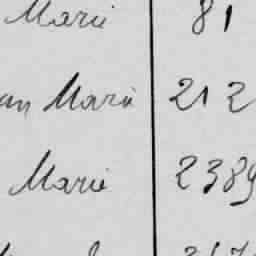 Marie 81
an Marie 212
Marie 2389